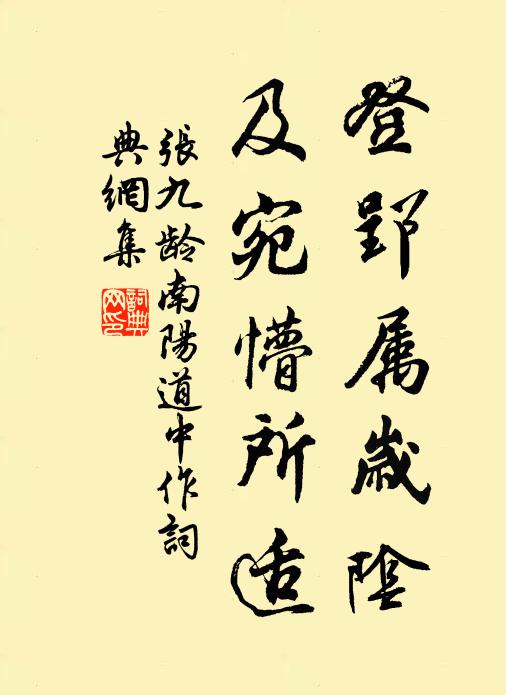 登郢属歲陰
及宛懵所适
張九龄南陽道中作詞
典網集
詞典網印